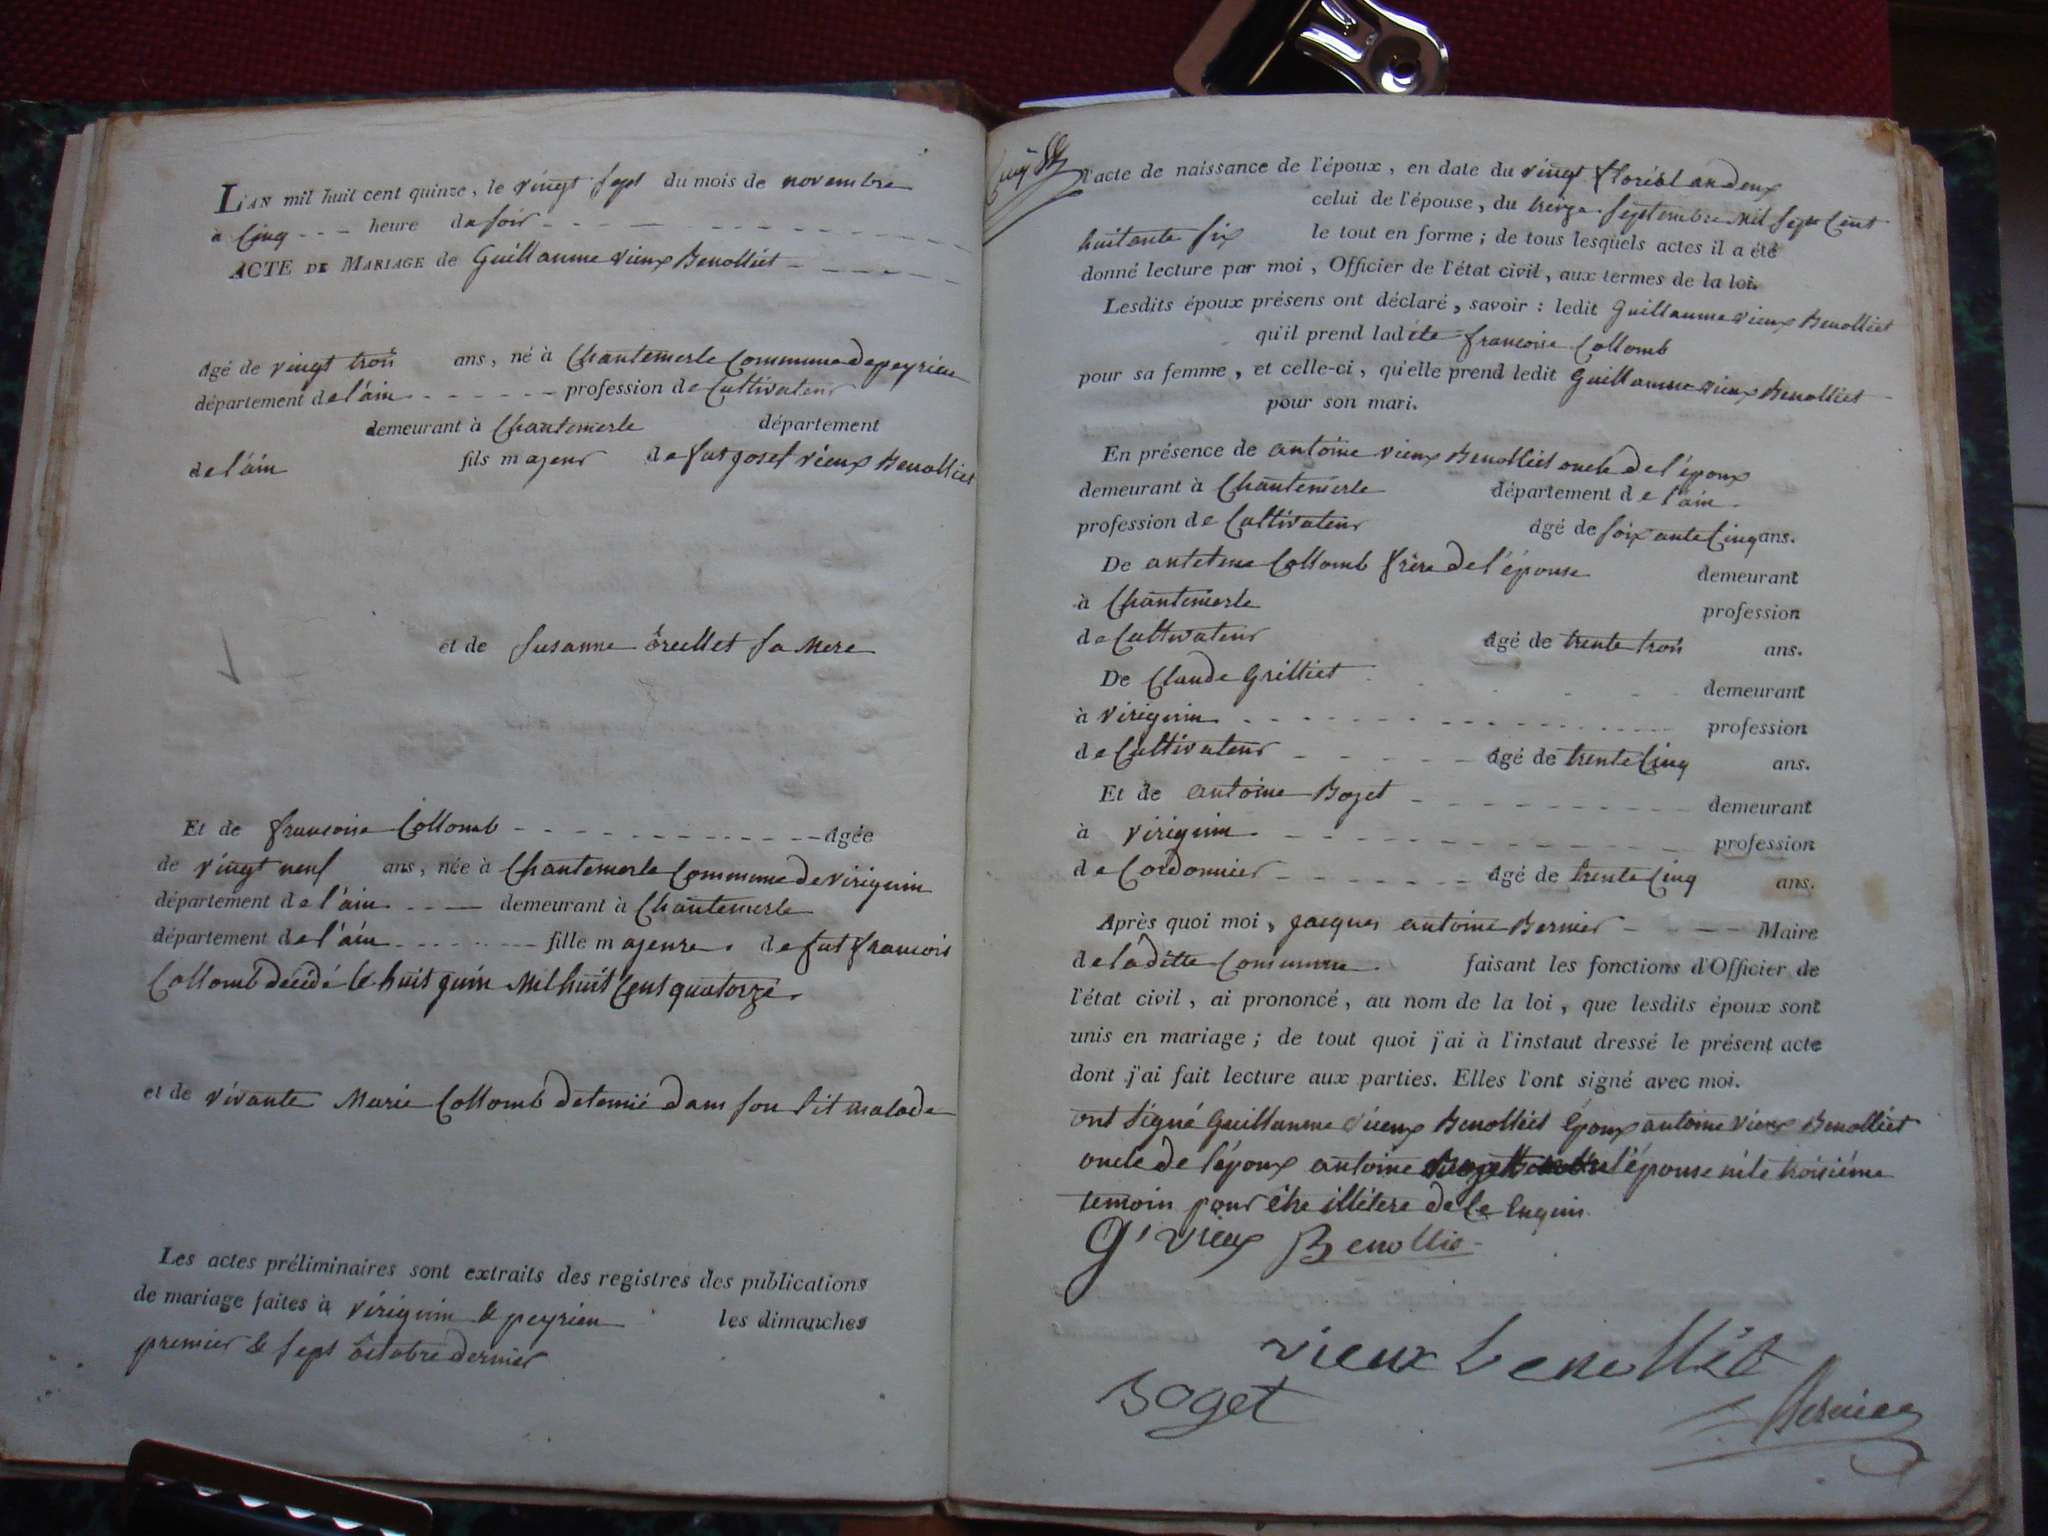 L'AN mil huit cent quinze, le vingt sept du mois de novembre
à Cinq heure du soir
ACTE DE MARIAGE de Guillaume vieux Benolliet
agé de vingt trois ans, né à Chantemerle Commune de peyrieu
département de l'ain profession de Cultivateur
demeurant à Chantemerle département
de l'ain fils majeur de fut josef vieux Benolliet
et de susanne sa Mere
Et de francoise Collomb agée
de vingt neuf ans, née à Chantemerle Commune de virignin
département de l'ain demeurant à Chantemerle
département de l'ain fille majeure. de fut francois
Collomb décédé le huit juin Mil huit Cent quatorze.
et de vivante Marie Collomb detenue dans son lit malade
Les actes préliminaires sont extraits des registres des publications
de mariage faites à virignin & peyrieu les dimanches
premier & sept octobre dernier
l'acte de naissance de l'époux, en date du vingt floréal an deux
celui de l'épouse, du treize septembre Mil sept Cent
huitante six le tout en forme ; de tous lesquels actes il a été
donné lecture par moi, Officier de l'état civil, aux termes de la loi.
Lesdits époux présens ont déclaré, savoir : ledit Guillaume vieux Benolliet
qu'il prend ladite francoise Collomb
pour sa femme, et celle-ci, qu'elle prend ledit Guillaume vieux Benolliet
pour son mari.
En présence de antoine vieux Benolliet oncle de l'époux
demeurant à Chantemerle département de l'ain
profession de Cultivateur âgé de soixante Cinq ans.
De antelme Collomb frère de l'épouse demeurant
à Chantemerle profession
de Cultivateur âgé de trente trois ans.
De Claude Grilliet demeurant
à virignin profession
de Cultivateur âgé de trente Cinq ans.
Et de antoine Boget demeurant
à virignin profession
de Cordonnier âgé de trente Cinq ans.
Après quoi moi, jacques antoine Bernier Maire
de laditte Commune faisant les fonctions d'Officier de
l'état civil, ai prononcé, au nom de la loi, que lesdits époux sont
unis en mariage ; de tout quoi j'ai à l'instaut dressé le présent acte
dont j'ai fait lecture aux parties. Elles l'ont signé avec moi.
ont signé Guillaume vieux Benolliet Epoux antoine vieux Benolliet
oncle de l'époux antoine l'épouse ni le troisiéme
temoin pour être illétere de Ce Enquis
G vieux Benollie
vieux benolliet
Boget
Bernier